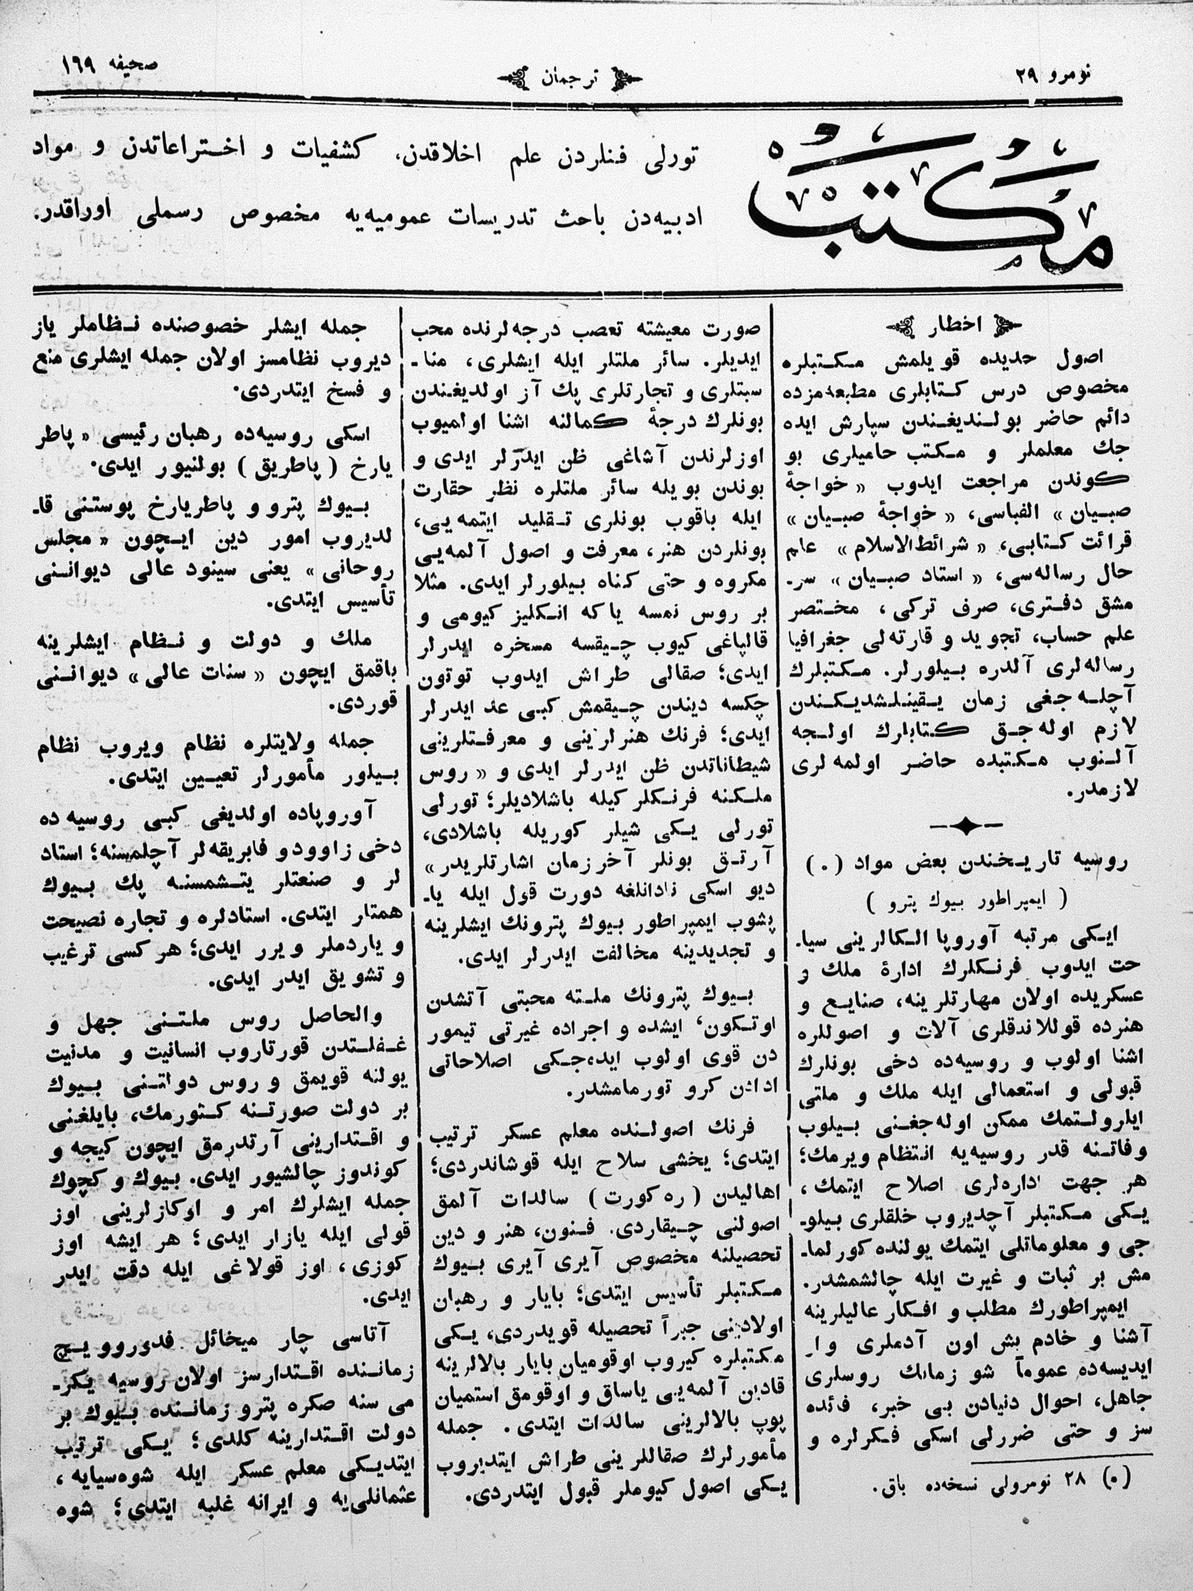 نومرو ٢٩
ترجمان
صحيفه ١٦٩
مكتب
تورلی فنلردن علم اخلاقدن، كشفيات و اختراعاتدن و مواد
ادبيه‌دن باحث تدريسات عموميه‌يه مخصوص رسملی اوراقدر.
اخطار
اصول جديده قويلمش مكتبلره
مخصوص درس كتابلری مطبعه‌مزده
دائم حاضر بولنديغندن سپارش ايده
جك معلملر و مكتب حاميلری بو
كوندن مراجعت ايدوب « خواجۀ
صبيان » الفباسی، « خواجۀ صبيان »
قرائت كتابی، « شرائط الاسلام » علم
حال رساله‌سی، « استاد صبيان » سر-
مشق دفتری، صرف تركی، مختصر
علم حساب، تجويد و قارته‌لی جغرافيا
رساله‌لری آلدره بيلورلر. مكتبلرك
آچله‌جغی زمان يقينلشديكندن
لازم اوله‌جق كتابلرك اولجه
آلنوب مكتبده حاضر اولمه‌لری
لازمدر.
روسيه تاريخندن بعض مواد (٠)
( ايمپراطور بيوك پترو )
ايكی مرتبه آوروپا الكالرينی سيا-
حت ايدوب فرنكلرك ادارۀ ملك و
عسكريده اولان مهارتلرينه، صنايع و
هنرده قوللاندقلری آلات و اصوللره
اشنا اولوب و روسيه‌ده دخی بونلرك
قبولی و استعمالی ايله ملك و ملتی
ايلرولتمك ممكن اوله‌جغنی بيلوب
وفاتنه قدر روسيه‌يه انتظام ويرمك؛
هر جهت اداره‌لری اصلاح ايتمك،
يكی مكتبلر آچديروب خلقلری بيلو-
جی و معلوماتلی ايتمك يولنده كورلما-
مش بر ثبات و غيرت ايله چالشمشدر.
ايمپراطورك مطلب و افكار عاليلرينه
آشنا و خادم بش اون آدملری وار
ايديسه‌ده عموماً شو زمانك روسلری
جاهل، احوال دنيادن بی خبر، فائده
سز و حتی ضررلی اسكی فكرلره و
(٠) ٢٨ نومرولی نسخه‌ده باق.
صورت معيشته تعصب درجه‌لرنده محب
ايديلر. سائر ملتلر ايله ايشلری، منا-
سبتلری و تجارتلری پك آز اولديغندن
بونلرك درجۀ كمالنه اشنا اولميوب
اوزلرندن آشاغی ظن ايدرلر ايدی و
بوندن بويله سائر ملتلره نظر حقارت
ايله باقوب بونلری تقليد ايتمه‌يی،
بونلردن هنر، معرفت و اصول آلمه‌يی
مكروه و حتی كناه بيلورلر ايدی. مثلا
بر روس نمسه ياكه انكليز كيومی و
قالپاغی كيوب چيقسه مسخره ايدرلر
ايدی؛ صقالی طراش ايدوب توتون
چكسه ديندن چيقمش كبی عد ايدرلر
ايدی؛ فرنك هنرلرينی و معرفتلرينی
شيطاناتدن ظن ايدرلر ايدی و « روس
ملكنه فرنكلر كيله باشلاديلر؛ تورلی
تورلی يكی شيلر كوريله باشلادی،
آرتق بونلر آخر زمان اشارتلريدر »
ديو اسكی نادانلغه دورت قول ايله يا-
پشوب ايمپراطور بيوك پترونك ايشلرينه
و تجديدينه مخالفت ايدرلر ايدی.
بيوك پترونك ملته محبتی آتشدن
اوتكون، ايشده و اجراده غيرتی تيمور
دن قوی اولوب ايده‌جكی اصلاحاتی
ادادن كرو تورمامشدر.
فرنك اصولنده معلم عسكر ترتيب
ايتدی؛ يخشی سلاح ايله قوشاندردی؛
اهاليدن ( ره كورت ) سالدات آلمق
اصولنی چيقاردی. فنون، هنر و دين
تحصيلنه مخصوص آيری آيری بيوك
مكتبلر تأسيس ايتدی؛ بايار و رهبان
اولادينی جبراً تحصيله قويدردی، يكی
مكتبلره كيروب اوقوميان بايار بالالرينه
قادين آلمه‌يی ياساق و اوقومق استميان
پوپ بالالرينی سالدات ايتدی. جمله
مأمورلرك صقاللرينی طراش ايتديروب
يكی اصول كيوملر قبول ايتدردی.
جمله ايشلر خصوصنده نظاملر ياز
ديروب نظامسز اولان جمله ايشلری منع
و فسخ ايتدردی.
اسكی روسيه‌ده رهبان رئيسی « پاطر
يارخ ( پاطريق ) بولنيور ايدی.
بيوك پترو و پاطريارخ پوستنی قا-
لديروب امور دين ايچون « مجلس
روحانی » يعنی سينود عالی ديواننی
تأسيس ايتدی.
ملك و دولت و نظام ايشلرينه
باقمق ايچون « سنات عالی » ديواننی
قوردی.
جمله ولايتلره نظام ويروب نظام
بيلور مأمورلر تعيين ايتدی.
آوروپاده اولديغی كبی روسيه ده
دخی زاوود و فابريقه‌لر آچلمسنه؛ استاد
لر و صنعتلر يتشمسنه پك بيوك
همتار ايتدی. استادلره و تجاره نصيحت
و ياردملر ويرر ايدی؛ هر كسی ترغيب
و تشويق ايدر ايدی.
والحاصل روس ملتنی جهل و
غفلتدن قورتاروب انسانيت و مدنيت
يولنه قويمق و روس دولتنی بيوك
بر دولت صورتنه كتورمك، بايلغنی
و اقتدارينی آرتدرمق ايچون كيجه و
كوندوز چالشيور ايدی. بيوك و كچوك
جمله ايشلرك امر و اوكازلرينی اوز
قولی ايله يازار ايدی؛ هر ايشه اوز
كوزی، اوز قولاغی ايله دقت ايدر
ايدی.
آتاسی چار ميخائل فدوروويچ
زماننده اقتدارسز اولان روسيه يكر-
می سنه صكره پترو زماننده بيوك بر
دولت اقتدارينه كلدی؛ يكی ترتيب
ايتديكی معلم عسكر ايله شوه‌سيايه،
عثمانلی‌يه و ايرانه غلبه ايتدی؛ شوه